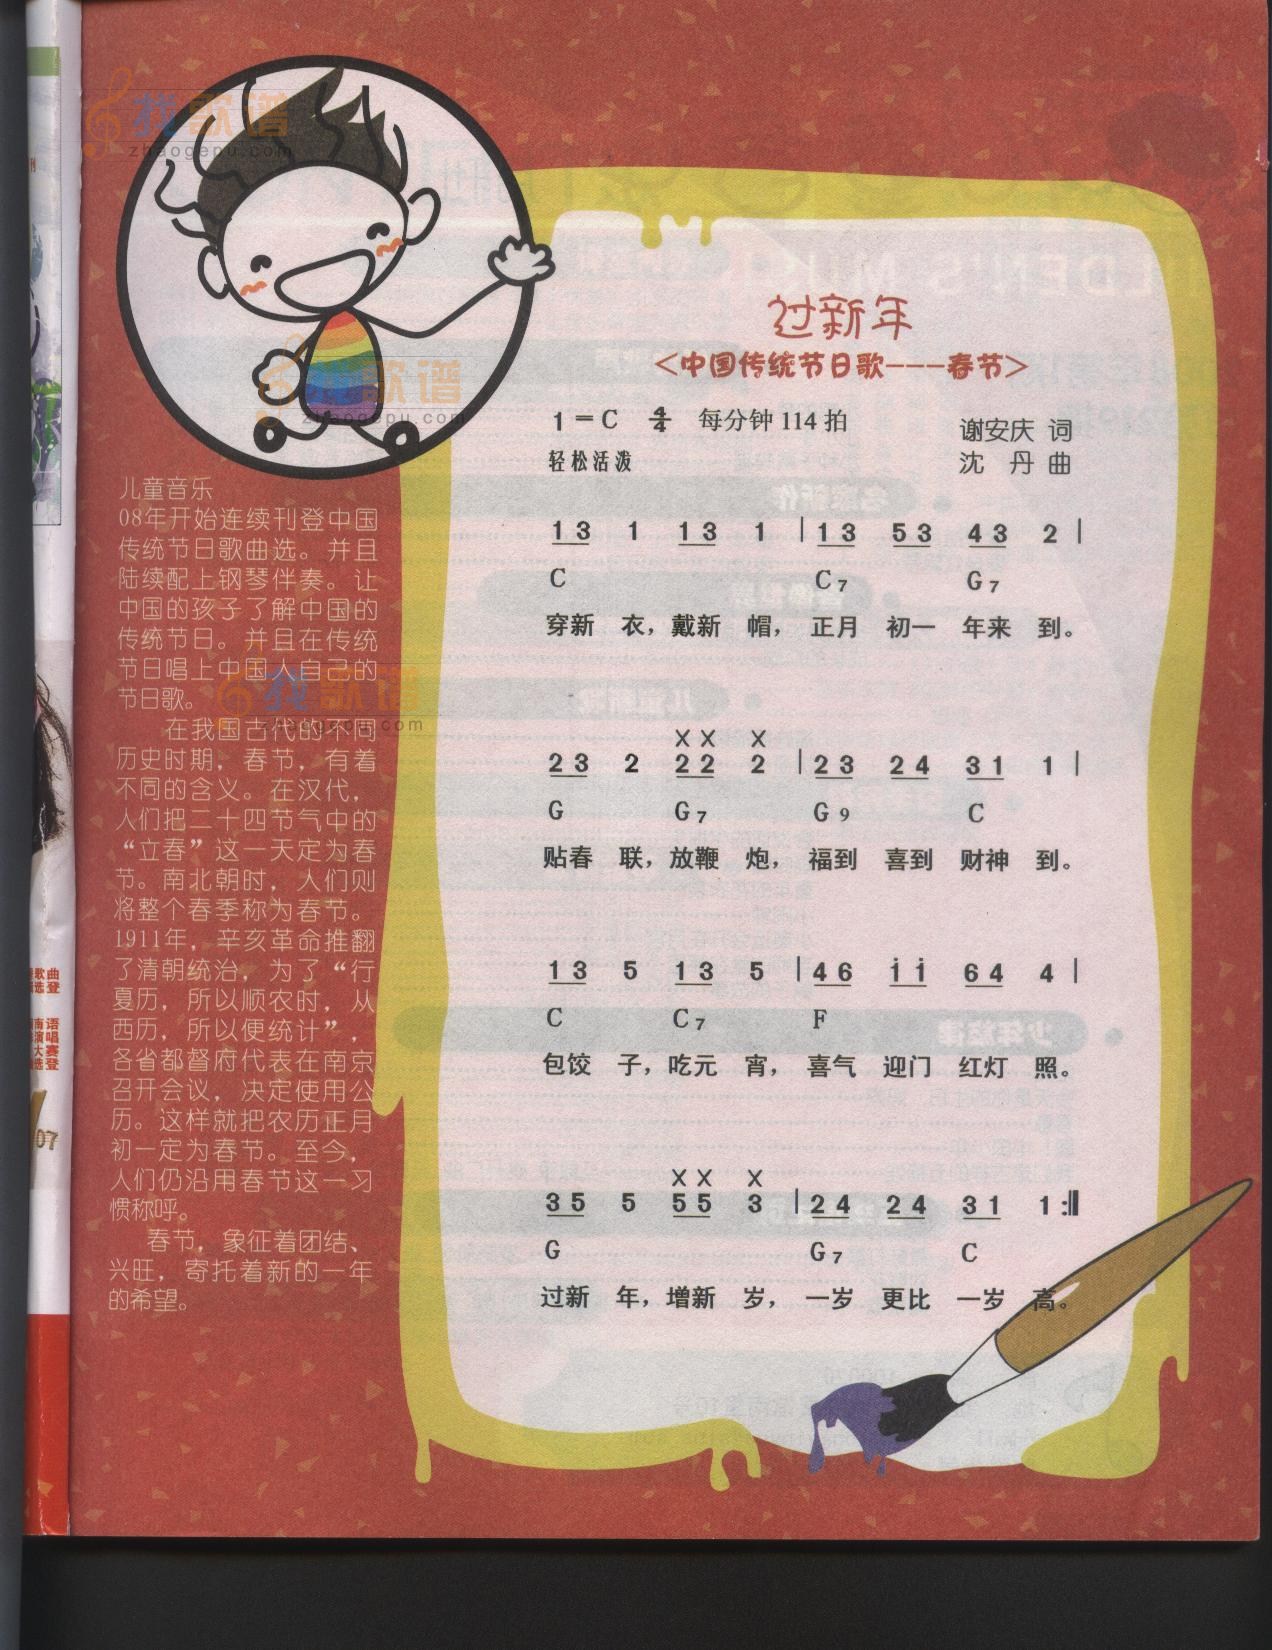 找歌谱
zhaogepu.com
过新年
<中国传统节日歌---春节>
1=C 4/4 每分钟114拍
谢安庆 词
轻松活泼
沈 丹 曲
1 3 1 1 3 1 | 1 3 5 3 4 3 2 |
C C7 G7
穿新 衣，戴新 帽， 正月 初一 年来 到。
X X X
2 3 2 2 2 2 | 2 3 2 4 3 1 1 |
G G7 G9 C
贴春 联，放鞭 炮， 福到 喜到 财神 到。
1 3 5 1 3 5 | 4 6 i i 6 4 4 |
C C7 F
包饺 子，吃元 宵， 喜气 迎门 红灯 照。
X X X
3 5 5 5 5 3 | 2 4 2 4 3 1 1 :||
G G7 C
过新 年，增新 岁， 一岁 更比 一岁 高。
找歌谱
zhaogepu.com
儿童音乐
08年开始连续刊登中国
传统节日歌曲选。并且
陆续配上钢琴伴奏。让
中国的孩子了解中国的
传统节日。并且在传统
节日唱上中国人自己的
节日歌。
找歌谱
zhaogepu.com
在我国古代的不同
历史时期，春节，有着
不同的含义。在汉代，
人们把二十四节气中的
“立春”这一天定为春
节。南北朝时，人们则
将整个春季称为春节。
1911年，辛亥革命推翻
了清朝统治，为了“行
夏历，所以顺农时，从
西历，所以便统计”，
各省都督府代表在南京
召开会议，决定使用公
历。这样就把农历正月
初一定为春节。至今，
人们仍沿用春节这一习
惯称呼。
春节，象征着团结、
兴旺，寄托着新的一年
的希望。
歌曲
选登
南语
演唱
大赛
选登
07